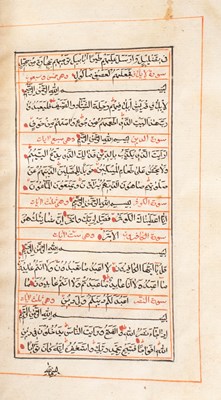 في تضليل وارسل عليهم طيرا ابابيل ترميهم بحجارة من سجيل
فجعلهم كعصف ماكول
بسم الله الرحمن الرحيم
لايلاف قريش ايلافهم رحلة الشتاء والصيف فليعبدوا
رب هذا البيت الذي اطعمهم من جوع وامنهم من خوف
سورة الدين وهي سبع ايات
بسم الله الرحمن الرحيم
ارايت الذي يكذب بالدين فذلك الذي يدع اليتيم
ولا يحض على طعام المسكين فويل للمصلين الذين هم عن
صلاتهم ساهون الذين هم يراؤن ويمنعون الماعون
بسم الله الرحمن الرحيم
انا اعطيناك الكوثر فصل لربك وانحر ان شانئك هو
الابتر
بسم الله الرحمن الرحيم
قل يا ايها الكافرون لا اعبد ما تعبدون ولا انتم عابدون
ما اعبد ولا انا عابد ما عبدتم ولا انتم عابدون ما
اعبد لكم دينكم ولي دين
بسم الله الرحمن الرحيم
اذا جاء نصر الله والفتح ورايت الناس يدخلون في دين
الله افواجا فسبح بحمد ربك واستغفره انه كان توابا